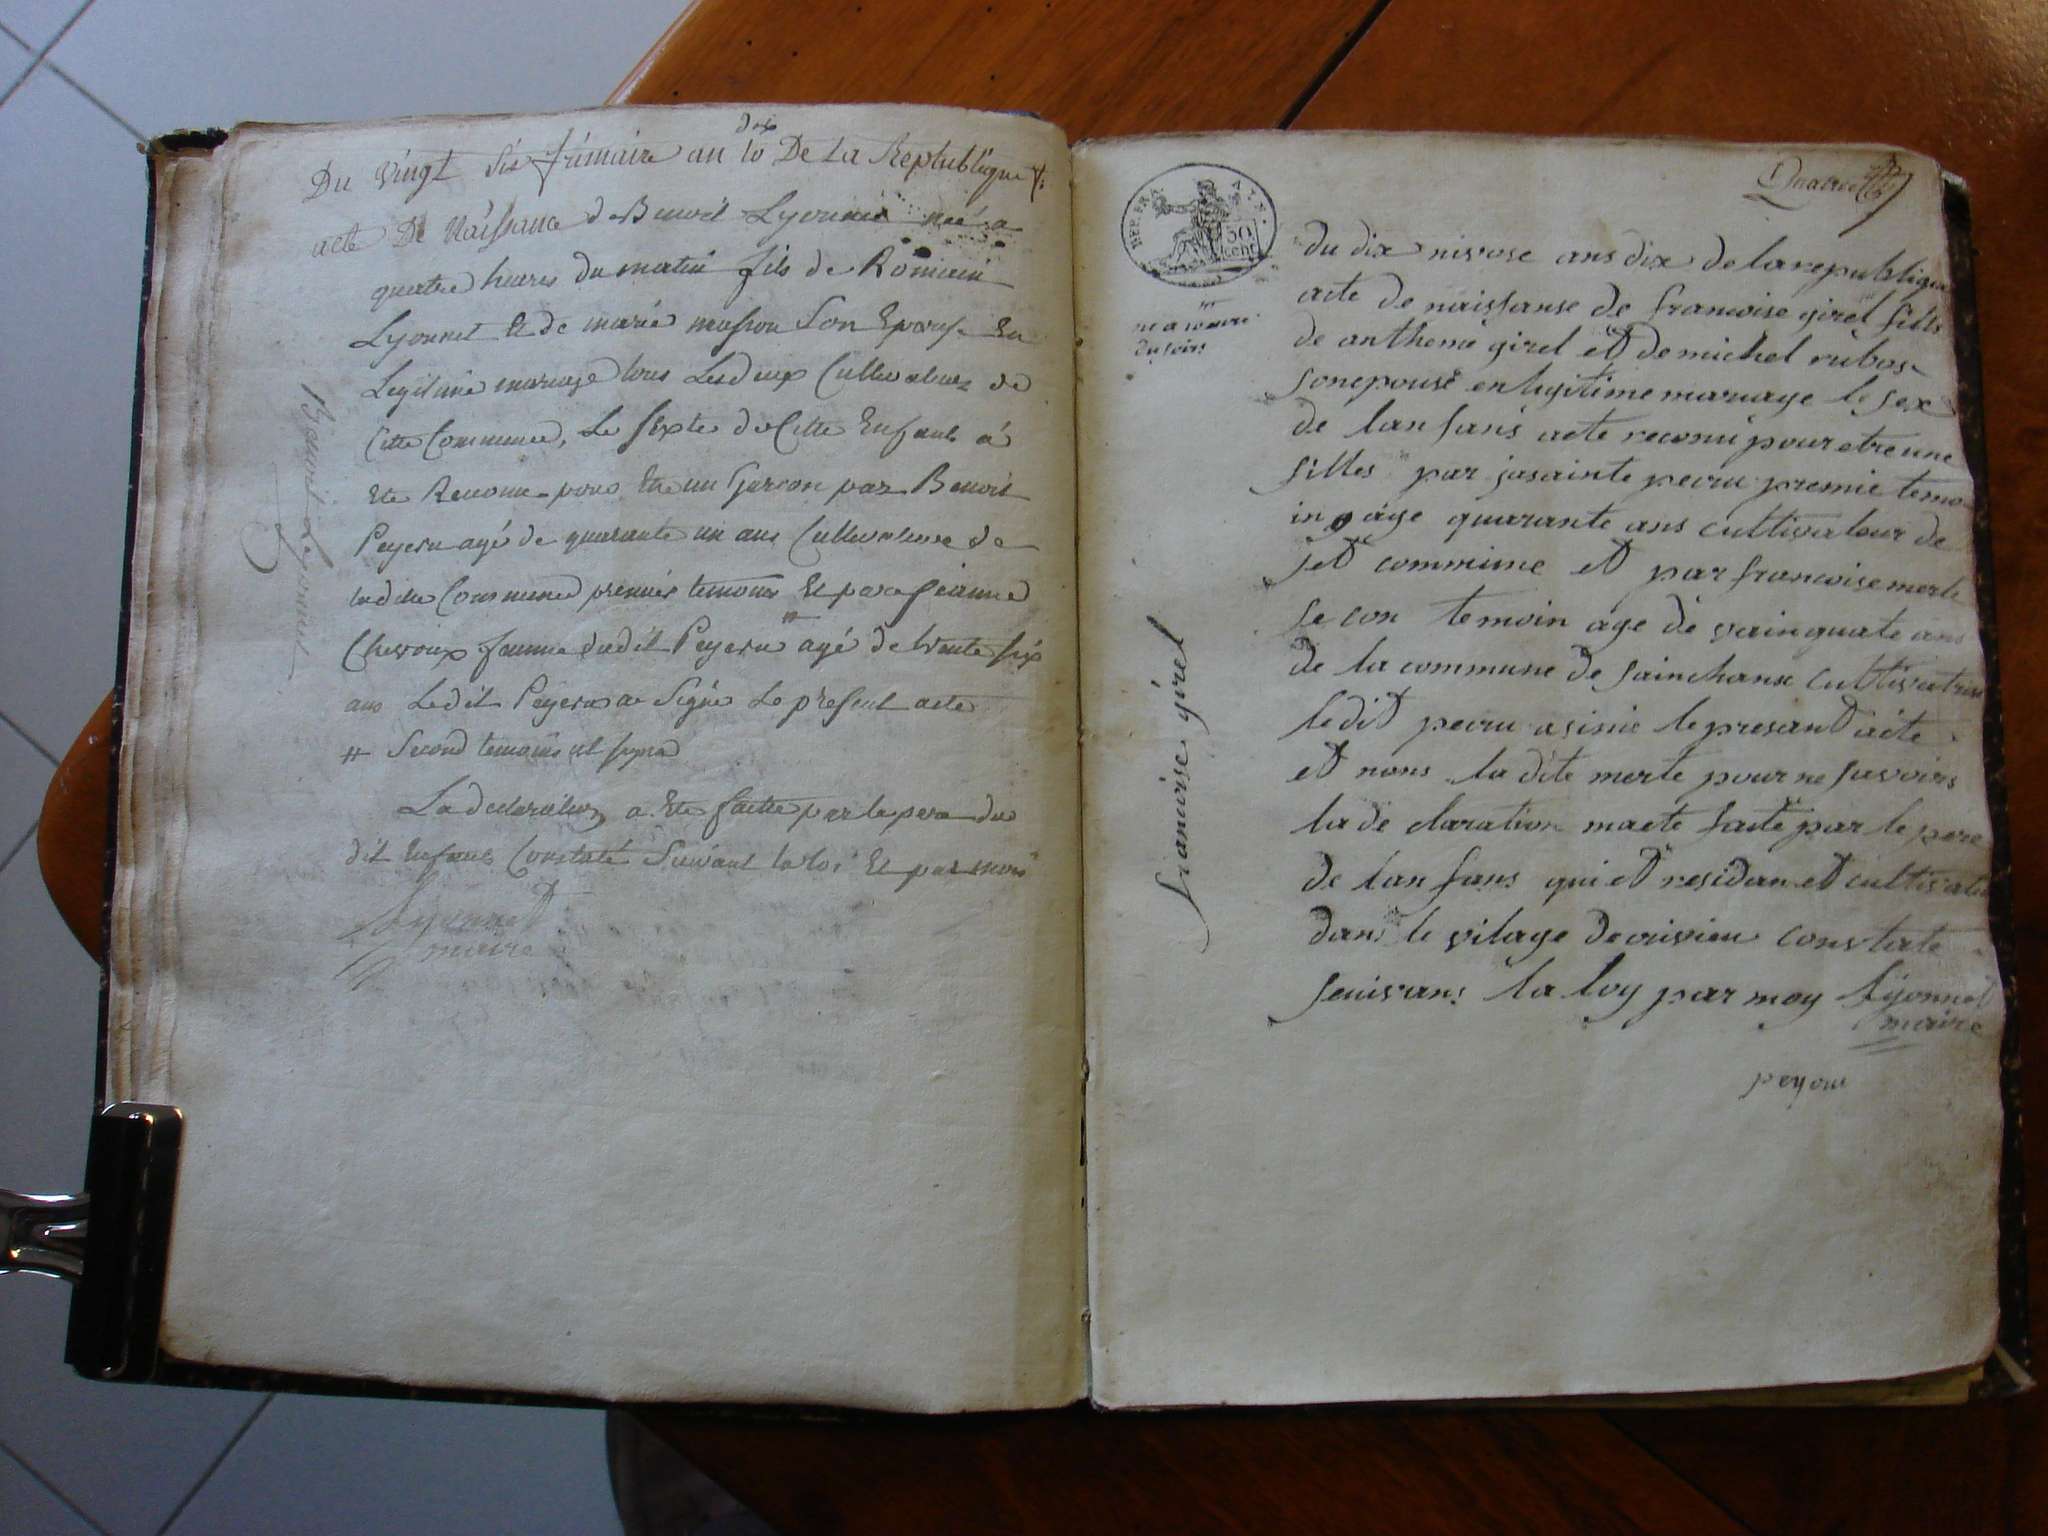 dix
Du vingt six frimaire an 10 De La Republique
acte De Naissance de Benoit Lyonnet né a
quatre heures du matin fils de Romain
Lyonnet Et de marie masson Son Epouse En
Legitime mariage tous Lesdeux Cultivateurs de
Cette Commune, Le Sexte de Cette Enfant à
Ete Reconu pour Etre un Garcon par Benoit
Peyeru agé de quarante un ans Cultivateur de
ladite Commune premier temoins Et par Jeanne
Chevoux femme dudit Peyeru # agé de trente six
ans Ledit Peyeru a Signé Le present acte
# Second temoins
La declaration a Ete faitte par le pere du
dit Enfant Constaté Suivant la loi Et par moi
Lyonnet
maire
Benoit Lyonnet
Quatre
REP. FRA
AYN.
50
cent
ne a
du soirs
francoise girel
du dix nivose ans dix de la republique
acte de naissanse de francoise girel fills
de antheme girel et de michel ribos
son epouse en legitime mariage le sex
de lanfans acte reconu pour etre une
filles par jasainte peyru premie temo
in age quarante ans cultivateur de
set commune et par francoise merle
secon temoin age de vainquate ans
de la commune de sainchanse cultivatrise
le dit peyru a sinie le presant acte
et nons la dite merle pour ne savoirs
la de claration macte faite par le pere
de lanfans qui et residan et cultivateu
dans le vilage de vivieu constate
seuivans la loy par moy Lyonnet
maire
peyrou